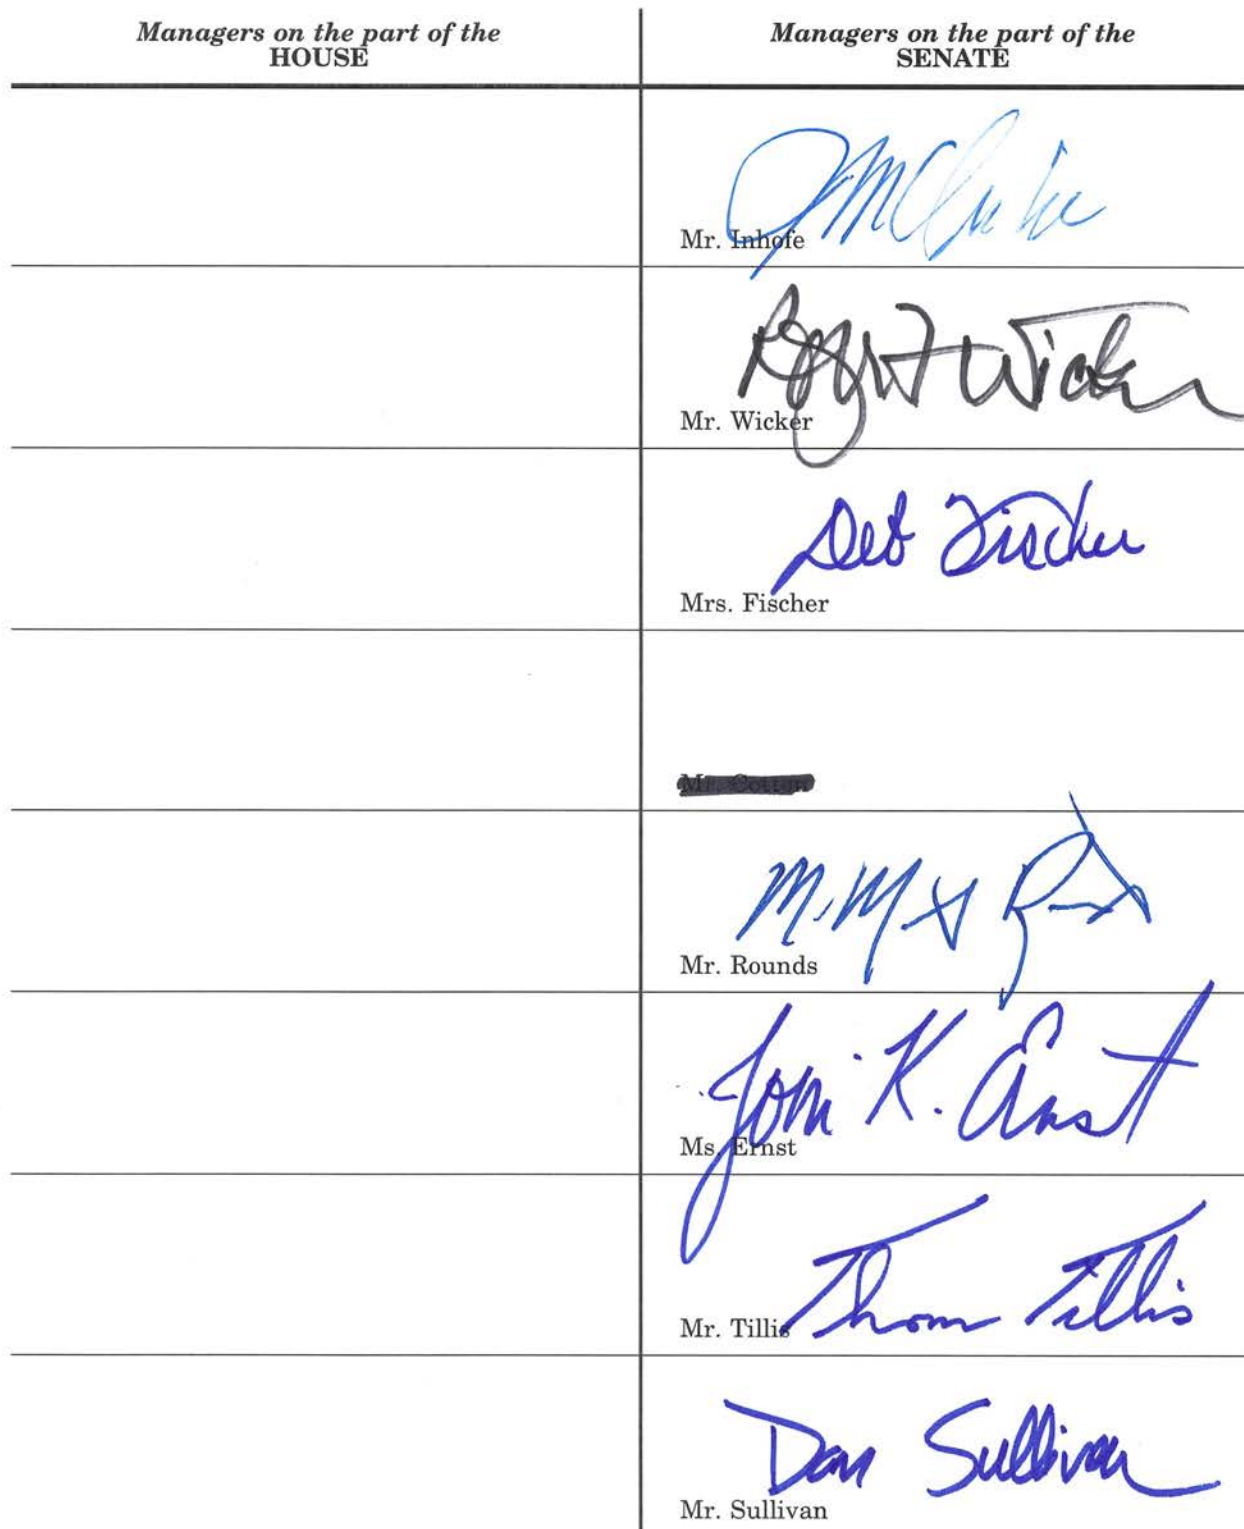 Managers on the part of the
HOUSE
Managers on the part of the
SENATE
Mr. Inhofe
Roger F Wicker
Mr. Wicker
Deb Fischer
Mrs. Fischer
Mr. Cotton
Mr. Rounds
Joni K. Ernst
Ms. Ernst
Thom Tillis
Mr. Tillis
Dan Sullivan
Mr. Sullivan